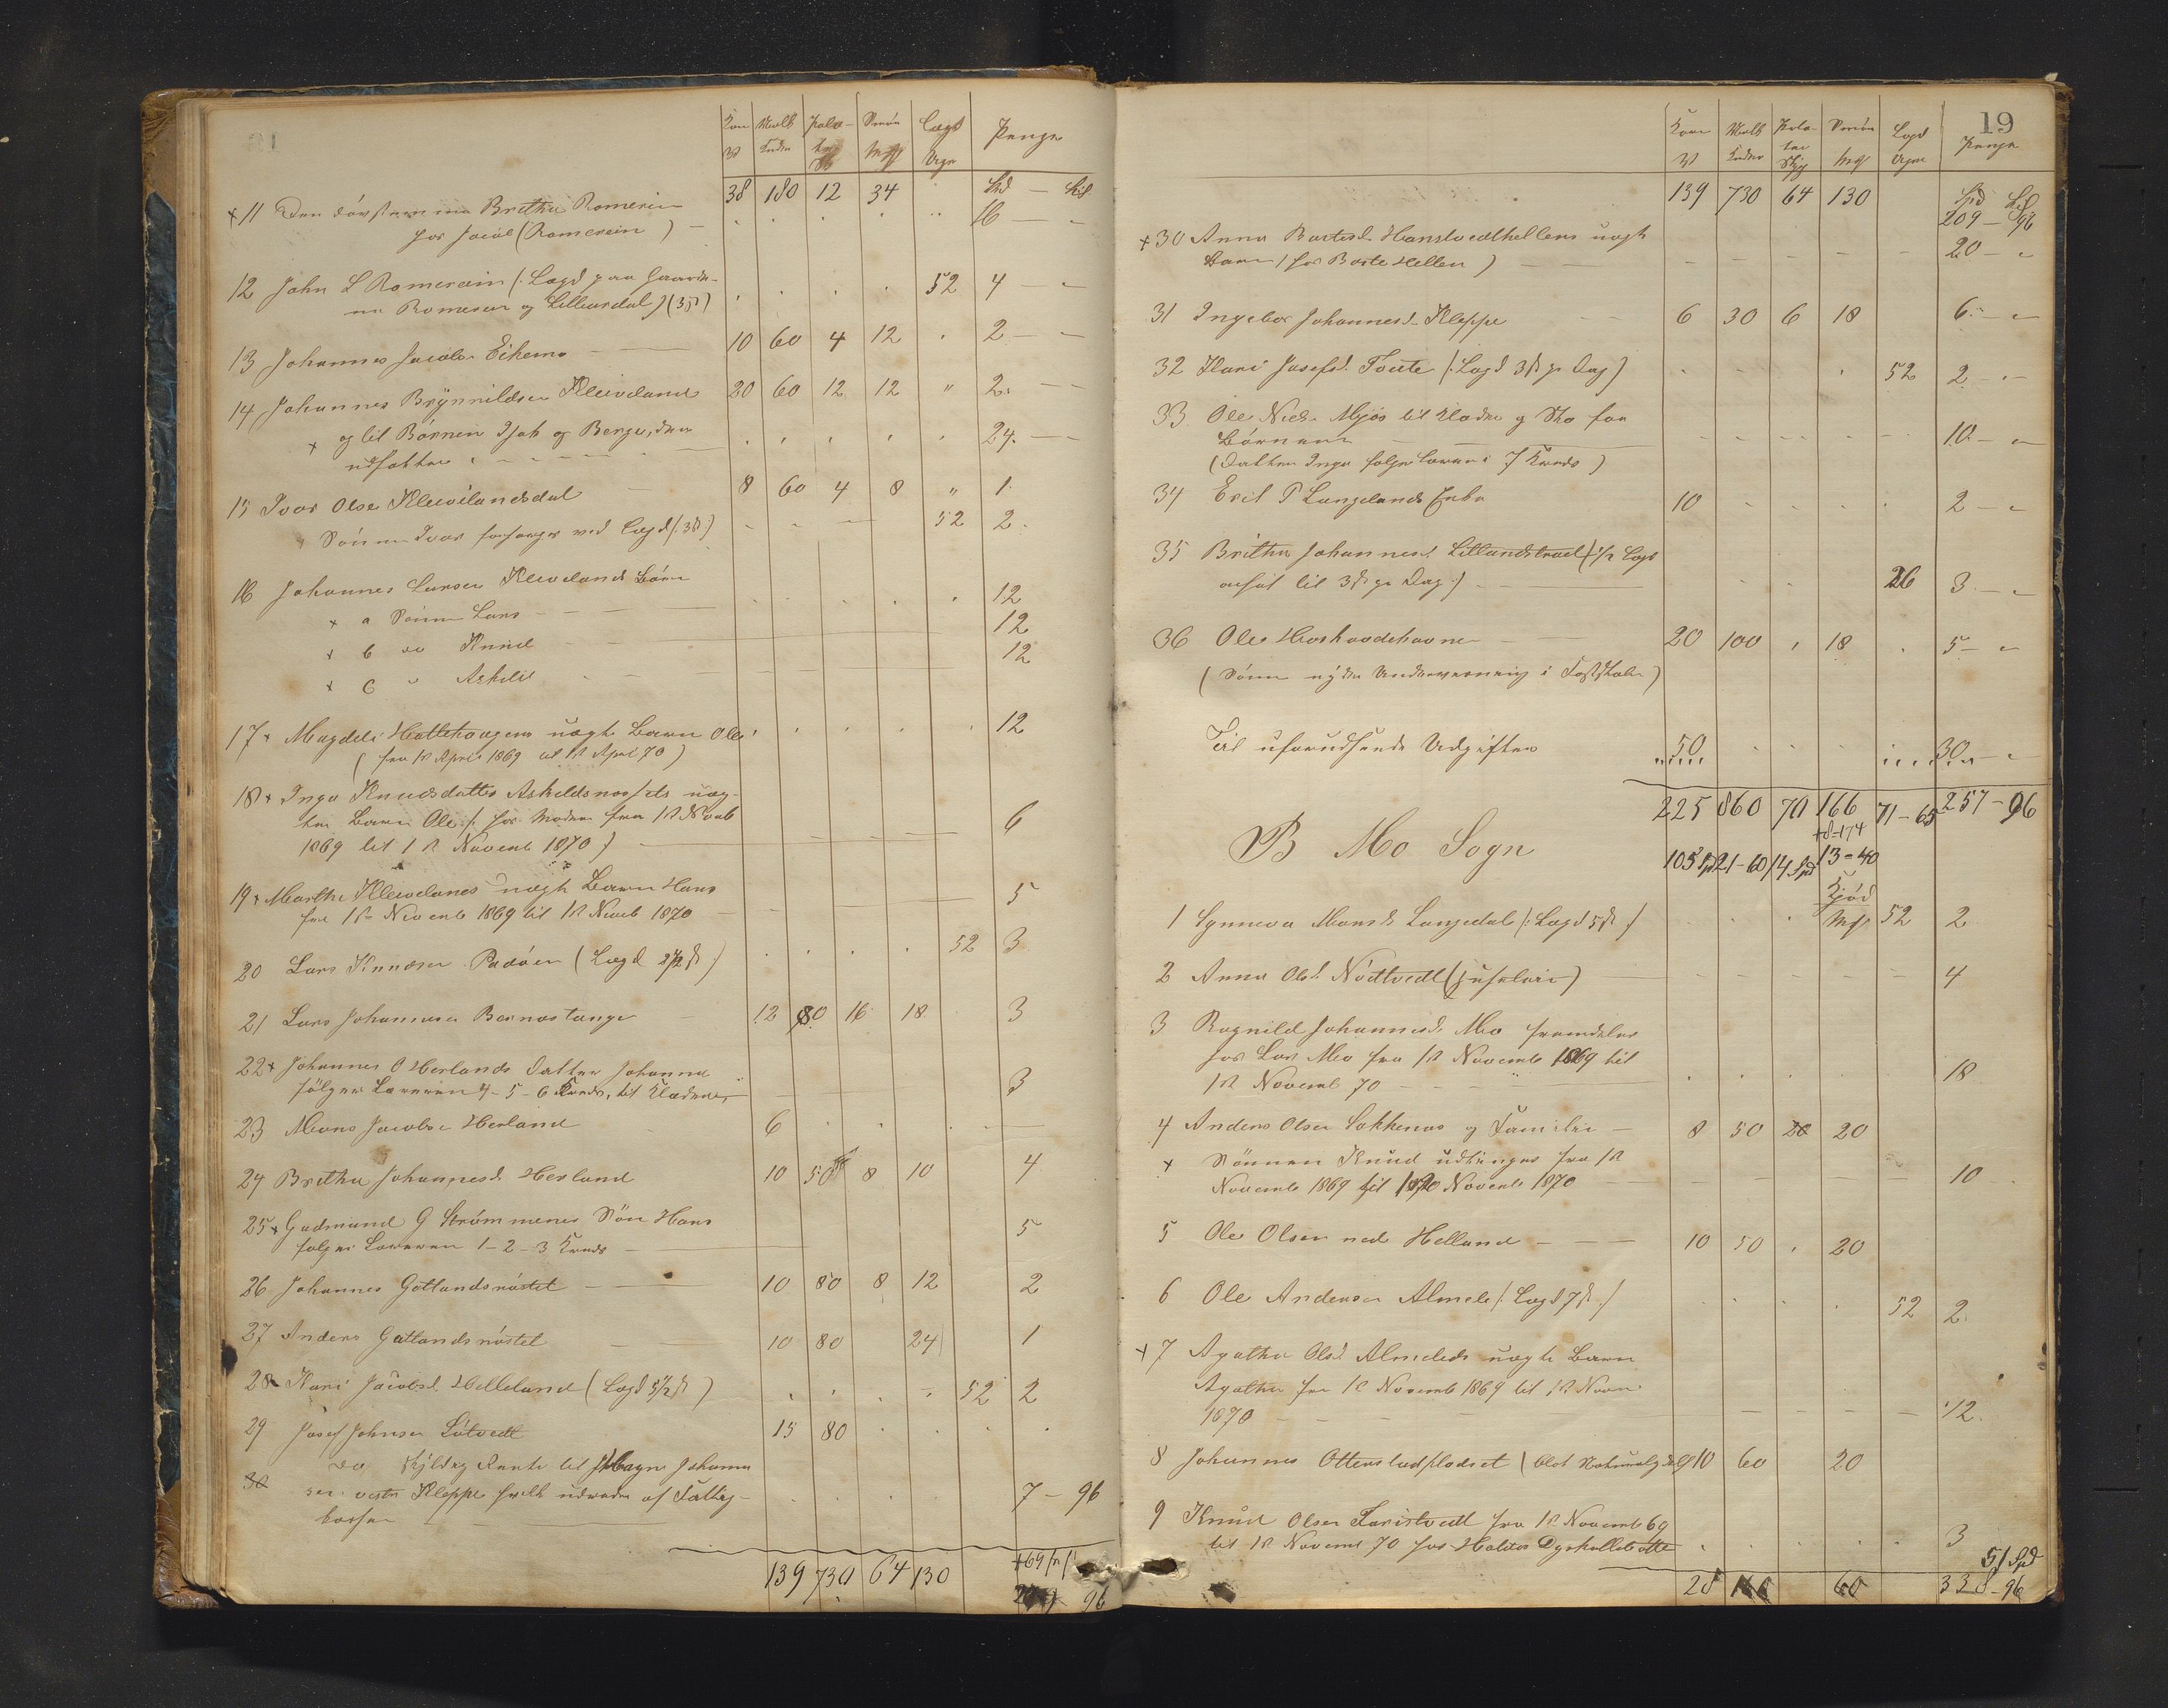 Korn Melk Pote- Lægd Penge
Vd
38 180 12 34 Spd — Skil
+ 11 Den døvstumme Britha Romerein
hos Jacob (Romerein) 16 — "
12 John L Romerein (: Lægd paa Gaarde-
ne Romerein og Lilleurdal) (3ß) 52 4 — "
13 Johannes Jacobs. Eikemo 10 60 4 12 2 — "
14 Johannes Brynnildsen Kleiveland 20 60 12 12 " 2 — "
+ og til Børnene Isak og Berge, den
udsatte 24 — "
15 Ivar Olsen Kleivelandsdal 8 60 4 8 " 1
Sønnen Ivar forsørges ved Lægd (: 3ß :) 52 2
16 Johannes Larsen Klevelands Børn
+ a Sønnen Lars 12
+ b do Knud 12
+ c " Askild 12
17 + Magdeli Hatlehaugens uægte Barn Ole 12
(fra 1ste April 1869 til 1ste April 70)
18 + Inga Knudsdatter Askeldsnæssets uæg-
te Barn Ole (: hos Moderen fra 1ste Novb 6
1869 til 1ste Novemb 1870)
19 + Marthe Klevelands uægte Barn Hans 5
fra 1ste Novemb 1869 til 1ste Novemb 1870
20 Lars Knudsen Padøen (Lægd 2½ ß) 52 3
21 Lars Johannesen Bernestange 12 80 16 18 3
22 + Johannes O Herlands Datter Johanna
følger Læreren 4-5-6 Kreds, til Klæder 3
23 Mons Jacobsen Herland 6
24 Britha Johannesd. Herland 10 50 8 10 4
25 + Gudmund G Strømmenes Søn Hans 5
følger Læreren 1-2-3 Kreds
26 Johannes Gotlandsnøstet 10 80 8 12 2
27 Anders Gotlandsnøstet 10 80 24 1
28 Kari Jacobsd. Helleland (Lægd 5½ ß) 52 2
29 Josef Johnsen Litvedt 15 80
30 do skyldig Rente til Magne Johanne-
sen vestre Kleppe udredes af Fattig-
kassen 7 — 96
139 730 64 130
96
19
Korn Melk Pota- Lægd Penge
Vd
139 730 64 130 Spd Skil
209 — 96
+ 30 Anna Bortesd. Hanstvedthellens uægte
Barn (hos Borte Hellen) 20 — "
31 Ingebor Johannesd. Kleppe 6 30 6 18 6 — "
32 Kari Josefsd. Toute (: Lægd 3ß pr Dag) 52 2 — "
33 Ole Niels. Mjøs til Klæder og Sko for
Børnene 10 — "
(Datteren Inga følger Læreren i 7 Kreds)
34 Erik P Langelands Enke 10 2 — "
35 Britha Johannesd. Litlandstræet (: ½ Lægd
ansat til 3ß pr Dag :) 26 3 — "
36 Ole Hoshovdehavn 20 100 " 18 5 — "
(Sønnen nyder Underviisning i Fastskole)
Til uforudseende Udgifter 50 30 — "
225 860 70 166 71-65 257-96
+8=174
105 Sp 21-60 14 Spd 13=40
B Mo Sogn
Kjød
Mk
1 Synneva Monsd. Langedal (: Lægd 5ß :) 52 2
2 Anna Olsd. Nødtvedt 4
3 Ragnild Johannesd. Mo fremdeles
hos Lars Mo fra 1ste Novemb 1869 til
1ste Novemb 70 18
4 Anders Olsen Sakkenæs og Familie 8 50 20 20
+ Sønnen Knud udtinges fra 1ste
Novemb 1869 til Novemb 1870 10
5 Ole Olsen nedr Helland 10 50 " 20
6 Ole Andersen Almeli (: Lægd 7ß :) 52 2
+ 7 Agatha Olsd. Almelids uægte Barn
Agatha fra 1ste Novemb 1869 til 1ste Novem
1870 12
8 Johannes Otterstadpladset 10 60 20
9 Knud Olsen Faristvedt fra 1ste Novemb 69
til 1ste Novemb 70 hos 3
51 Spd
28 60 338-96